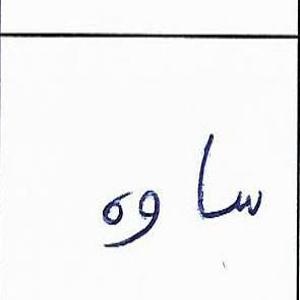 ساوه